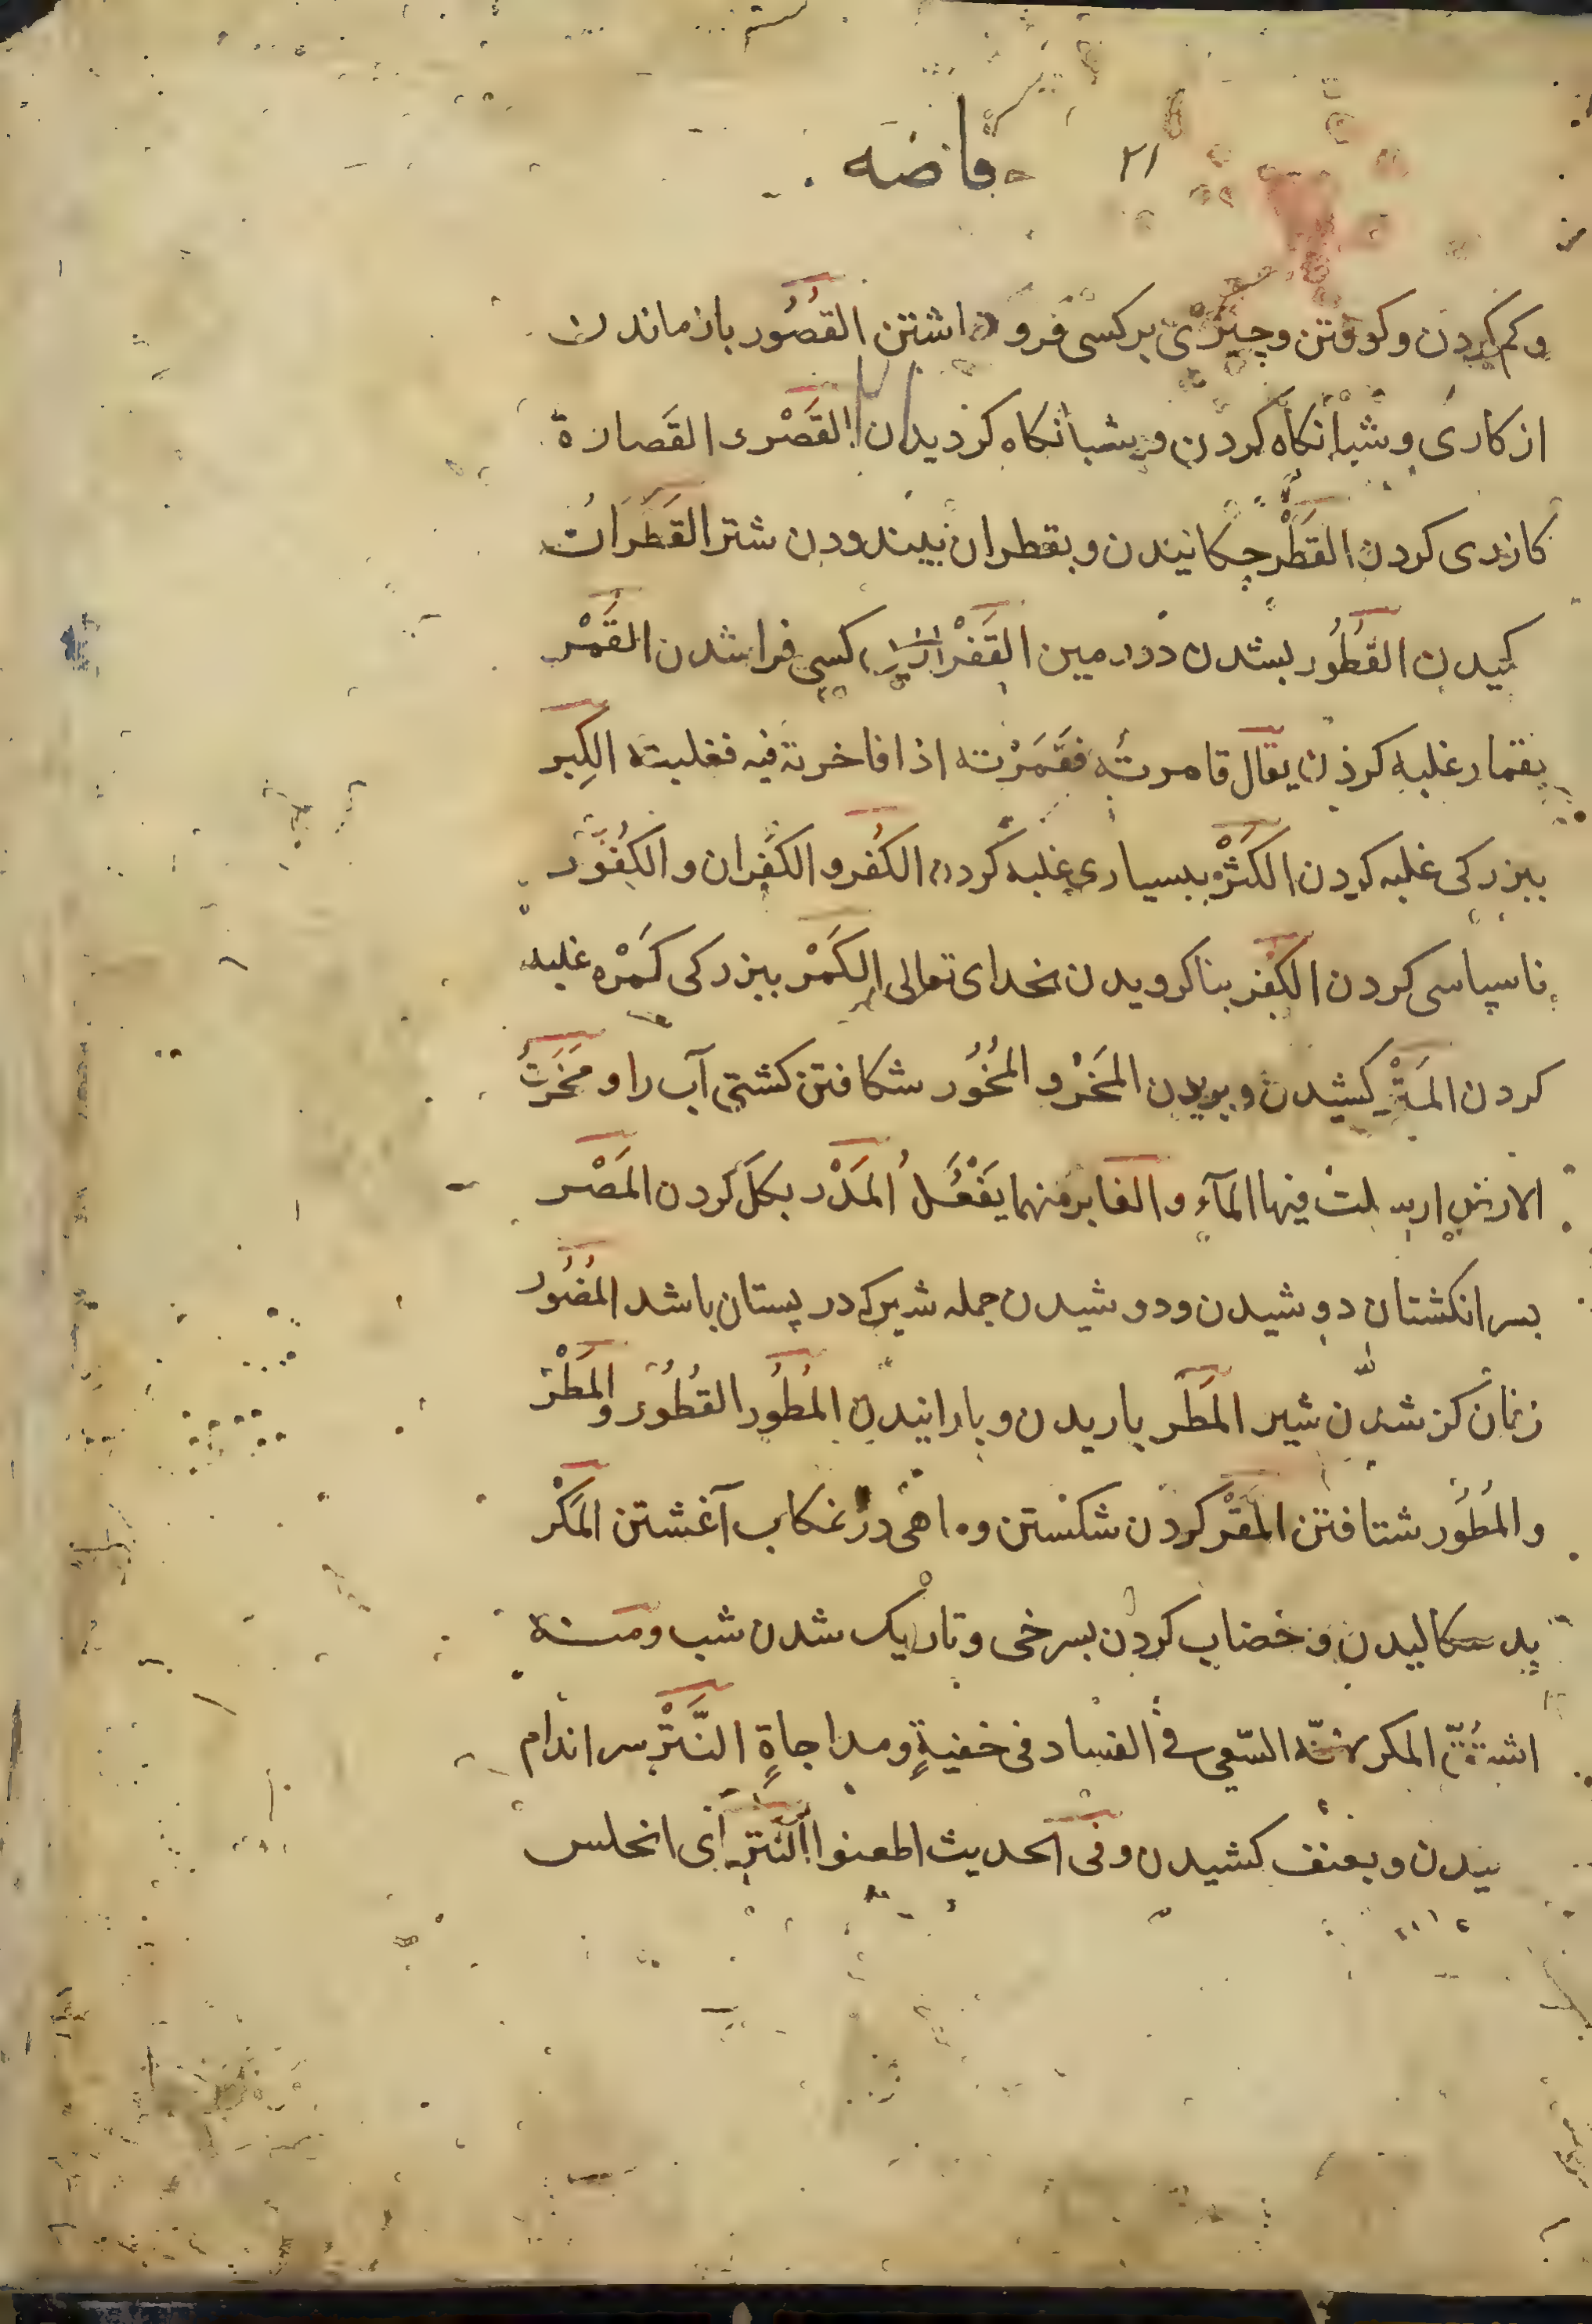 ۲۱ فاضه
وکم کردن و کوفتن و چیزی بر کسی فرو داشتن القُصُور باز ماندن
از کاری و شبانکاه کردن و بشبانکاه کردیدن القَصْر و القَصارة
کازری کردن القَطْر چکانیدن و بقطران بیندودن شتر القَطَرَان
کیدن القُطُور بشدن در زمین القَفْر کسی فرا شدن القَمْر
بقمار غلبه کرذن یقال قامرته فقَمَرْته اذا فاخرته فیه فغلبته الکِبر
ببزرکی غلبه کردن الکَثْر ببسیاری غلبه کردن الکُفر و الکفران و الکُفُور
ناسپاسی کردن الکُفر بنا کرویدن بخدای تعالی الکَمْر ببزرکی کَمْره غلبه
کردن المَتْر کشیدن و بریدن المَخْر و المُخُور شکافتن کشتی آب را و مَخَرَتُ
الارض ارسلت فیها المآء و الغابر منهما یَفْعَلُ المَدْر بکل کردن المَصْر
بسر انکشتان دوشیدن و دوشیدن جمله شیر که در پستان باشد المُضُور
زمان کز شدن شیر المَطَر باریدن و بارانیدن المُطُور القُطُور و المَطْر
و المُطُور شتافتن المَقْر کردن شکستن و ماهی در نمکاب آغشتن المَکْر
بد سکالیدن و خضاب کردن بسرخی و تاریک شدن شب و منه
اشتُقّ المکر لانّه السّعی فی الفساد فی خفیةٍ و مداجاةٍ النَّتْر سر اندام
نیدن و بعنف کشیدن و فی الحدیث اطعنوا النَّتر أی الخلس